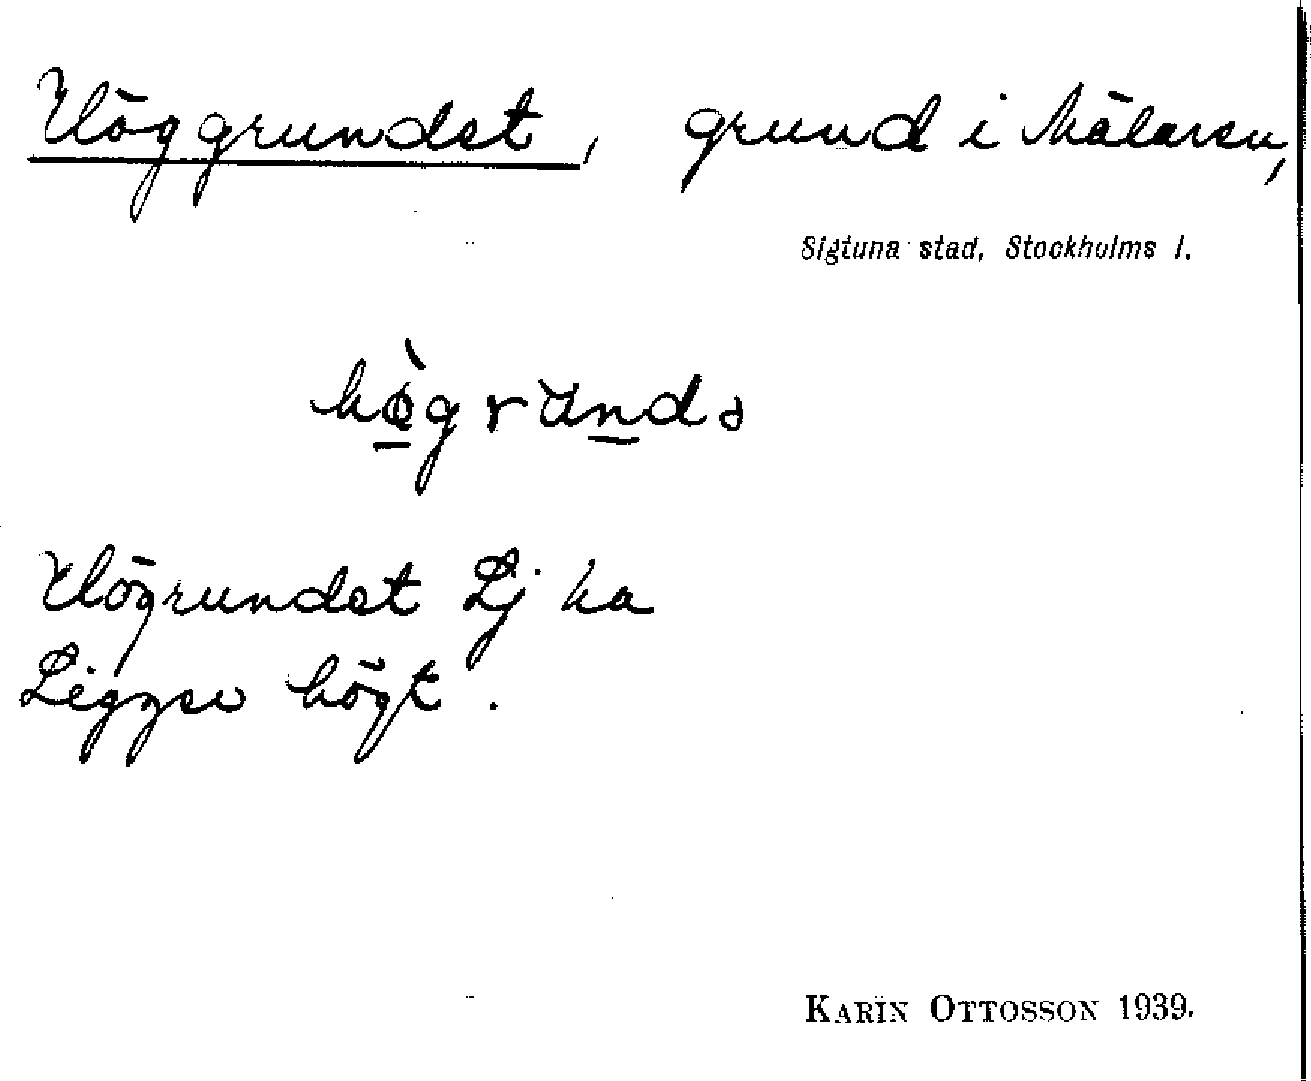 Höggrundet, grund i Mälaren,
Sigtuna stad, Stockholms l.
hø̀grund
Högrundet Lj ka
Ligger högt.
KARIN OTTOSSON 1939.